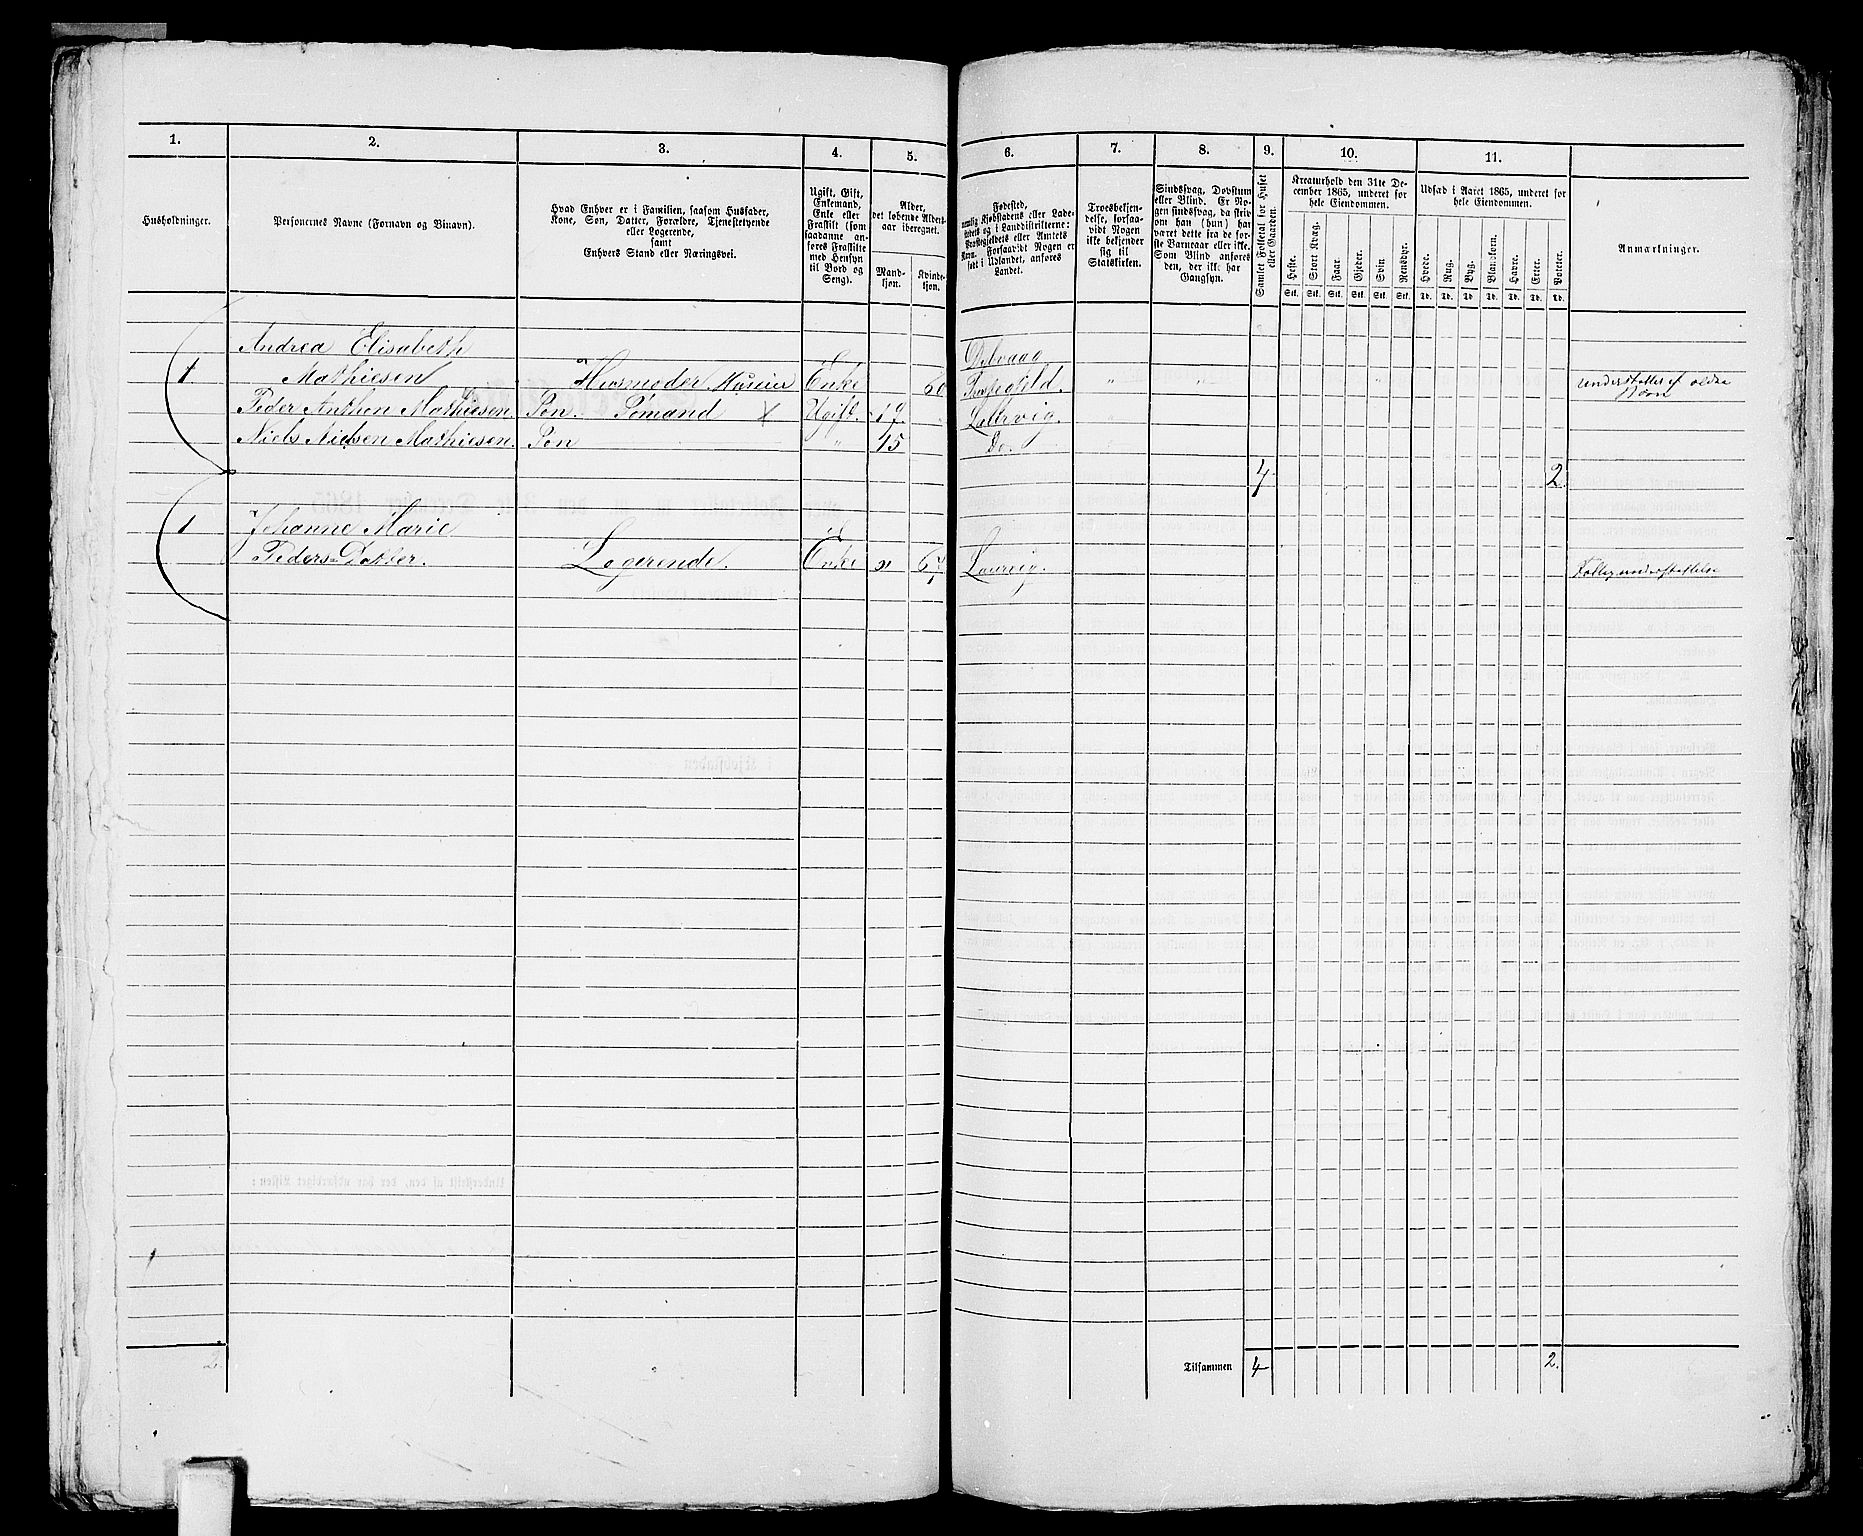 1.
2.
3.
4.
5.
6.
7.
8.
9.
10.
11.
Husholdninger.
Personernes Navne (Fornavn og Binavn).
Hvad Enhver er i Familien, saasom Husfader,
Kone, Søn, Datter, Forældre, Tjenestetyende
eller Logerende,
samt
Enhvers Stand eller Næringsvei.
Ugift, Gift,
Enkemand,
Enke eller
Fraskilt (som
saadanne an-
føres Fraskilte
med Hensyn
til Bord og
Seng).
Alder,
det løbende Alders-
aar iberegnet.
Mand-
kjøn.
Kvinde-
kjøn.
Fødested,
Kjøbstadens eller Lade-
og i Landdistrikterne:
eller Amtets
Forsaavidt Nogen er
født i Udlandet, anføres
Landet.
Troesbekjen-
delse, forsaa-
vidt Nogen
ikke bekjender
sig til
Statskirken.
Sindssvag, Døvstum
eller Blind. Er No-
gen sindssvag, da skriv
om han (hun) har
været dette fra de før-
ste Barneaar eller ikke.
Som Blind anføres
den, der ikke har
Gangsyn.
Samlet Folketal for Huset
eller Gaarden.
Kreaturhold den 31te De-
cember 1865, underet for
hele Eiendommen.
Heste.
Stort Kvæg.
Faar.
Gjeder.
Svin
Rensdyr.
Stk. Stk. Stk. Stk. Stk. Stk.
Udsæd i Aaret 1865, underet for
hele Eiendommen.
Hvede.
Rug.
Byg.
Blandkorn.
Havre.
Erter.
Poteter.
Td. Td. Td. Td. Td. Td. Td.
Anmærkninger.
Andrea Elisabeth
1 Mathiesen Huusmoder Enke 60 " " understøttes af ældre
Børn
Peder Anthon Mathiesen Søn. Sømand X Ugift. 19. " Laurvig.
Niels Nielsen Mathiesen. Søn " 15 Do.
4 2
1 Johanne Marie
Peders Datter. Logerende. Enke " Laurvig. Fattigunderstøttelse
2
Tilsammen 4 2.